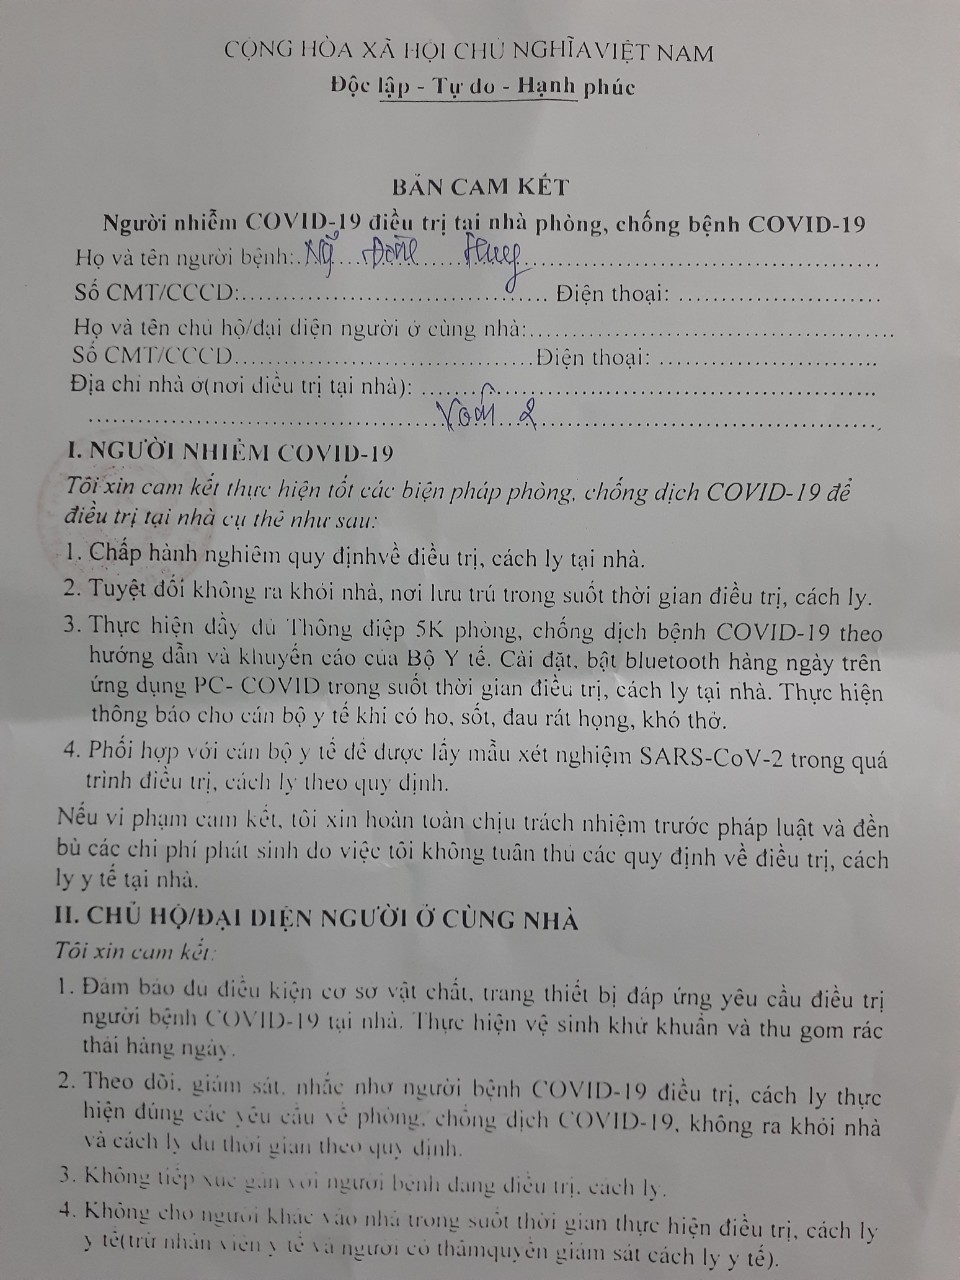 CỘNG HÒA XÃ HỘI CHỦ NGHĨAVIỆT NAM
Độc lập - Tự do - Hạnh phúc
BẢN CAM KẾT
Người nhiễm COVID-19 điều trị tại nhà phòng, chống bệnh COVID-19
Họ và tên người bệnh:
Số CMT/CCCD:.................................... Điện thoại: ........................
Họ và tên chủ hộ/đại diện người ở cùng nhà:...........................................
Số CMT/CCCD....................................Điện thoại: ..........................
Địa chỉ nhà ở(nơi điều trị tại nhà): .....................................................
2
I. NGƯỜI NHIỄM COVID-19
Tôi xin cam kết thực hiện tốt các biện pháp phòng, chống dịch COVID-19 để
điều trị tại nhà cụ thể như sau:
1. Chấp hành nghiêm quy địnhvề điều trị, cách ly tại nhà.
2. Tuyệt đối không ra khỏi nhà, nơi lưu trú trong suốt thời gian điều trị, cách ly.
3. Thực hiện đầy đủ Thông điệp 5K phòng, chống dịch bệnh COVID-19 theo
hướng dẫn và khuyến cáo của Bộ Y tế. Cài đặt, bật bluetooth hàng ngày trên
ứng dụng PC- COVID trong suốt thời gian điều trị, cách ly tại nhà. Thực hiện
thông báo cho cán bộ y tế khi có ho, sốt, đau rát họng, khó thở.
4. Phối hợp với cán bộ y tế để được lấy mẫu xét nghiệm SARS-CoV-2 trong quá
trình điều trị, cách ly theo quy định.
Nếu vi phạm cam kết, tôi xin hoàn toàn chịu trách nhiệm trước pháp luật và đền
bù các chi phí phát sinh do việc tôi không tuân thủ các quy định về điều trị, cách
ly y tế tại nhà.
II. CHỦ HỘ/ĐẠI DIỆN NGƯỜI Ở CÙNG NHÀ
Tôi xin cam kết:
1. Đảm bảo đủ điều kiện cơ sở vật chất, trang thiết bị đáp ứng yêu cầu điều trị
người bệnh COVID-19 tại nhà. Thực hiện vệ sinh khử khuẩn và thu gom rác
thải hàng ngày.
2. Theo dõi, giám sát, nhắc nhở người bệnh COVID-19 điều trị, cách ly thực
hiện đúng các yêu cầu về phòng, chống dịch COVID-19, không ra khỏi nhà
và cách ly đủ thời gian theo quy định.
3. Không tiếp xúc gần với người bệnh đang điều trị, cách ly.
4. Không cho người khác vào nhà trong suốt thời gian thực hiện điều trị, cách ly
y tế(trừ nhân viên y tế và người có thẩmquyền giám sát cách ly y tế).